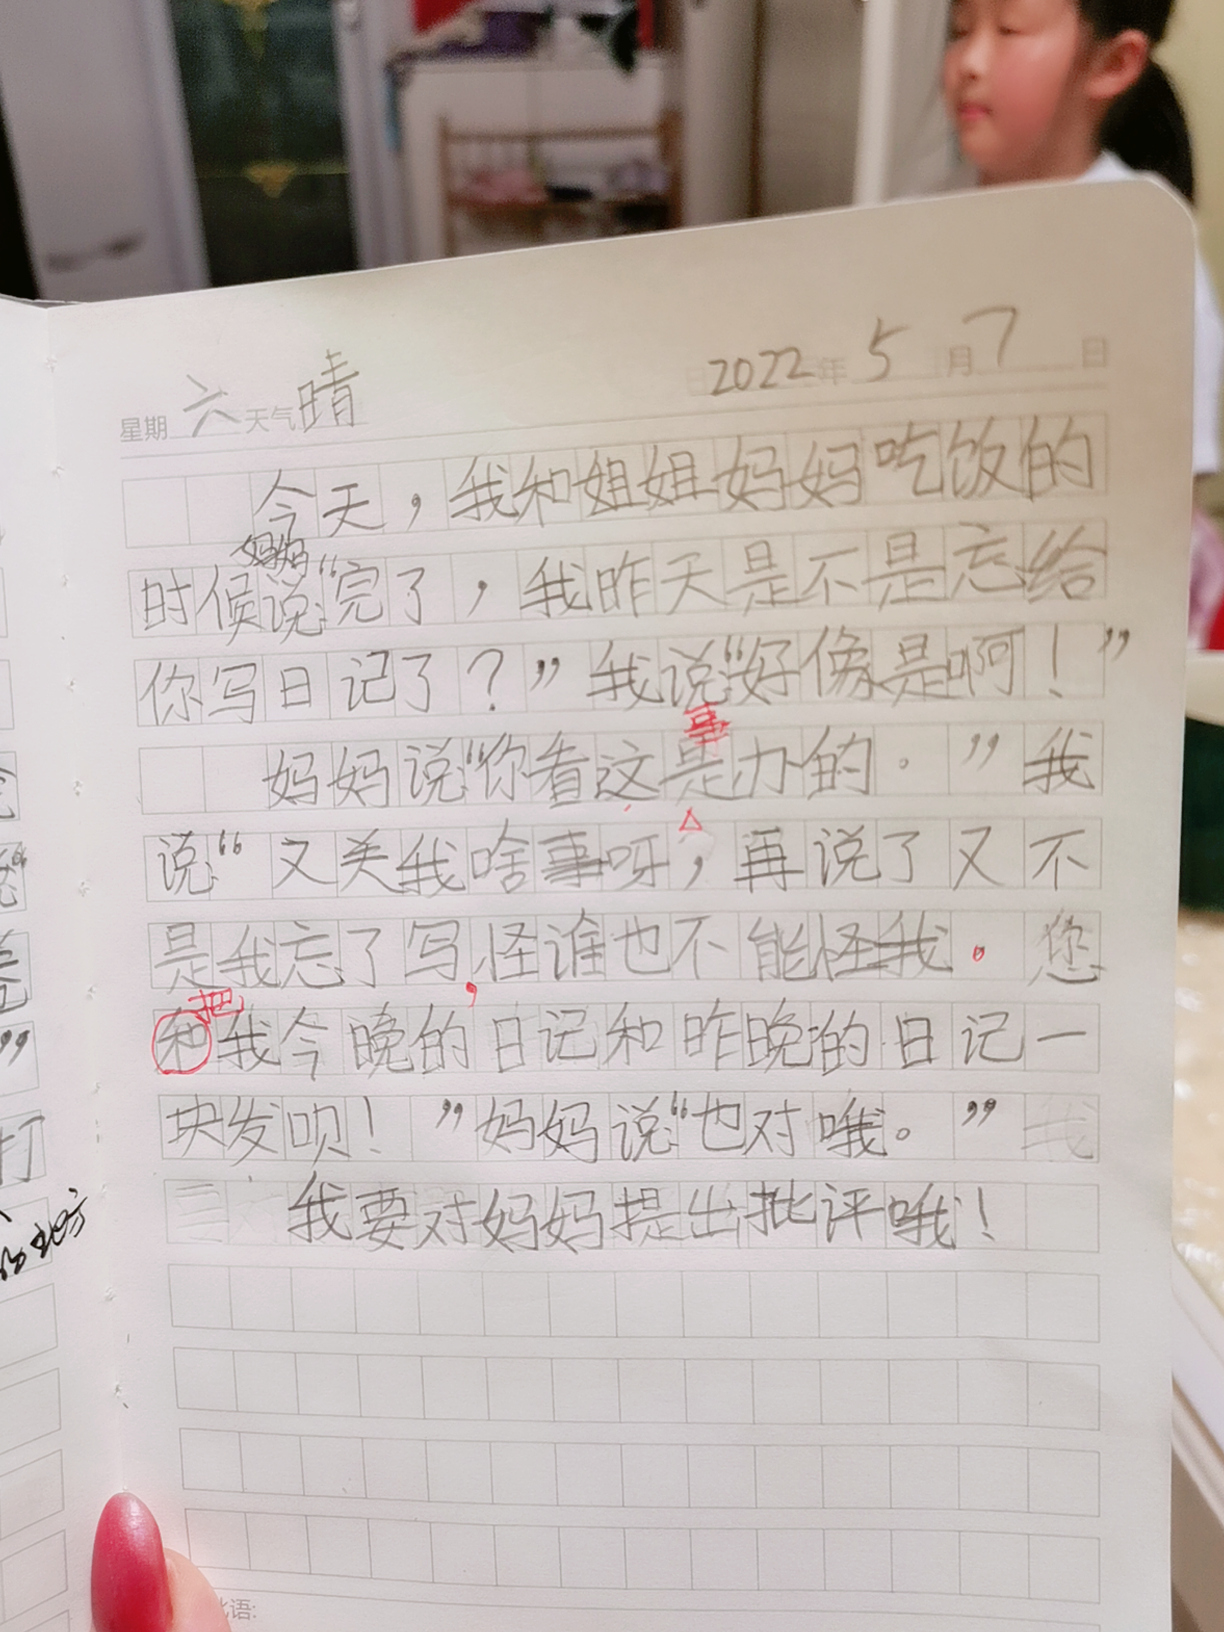 星期 六 天气 晴 2022年 5月7日
今天，我和姐姐妈妈吃饭的
妈妈
时候说“完了，我昨天是不是忘给
你写日记了？”我说“好像是啊！”
事
妈妈说“你看这是办的。”我
说“又关我啥事呀，再说了又不
是我忘了写，怪谁也不能怪我。您
把
和我今晚的日记和昨晚的日记一
块发呗！”妈妈说“也对哦。”我
我要对妈妈提出批评哦！
语:
打